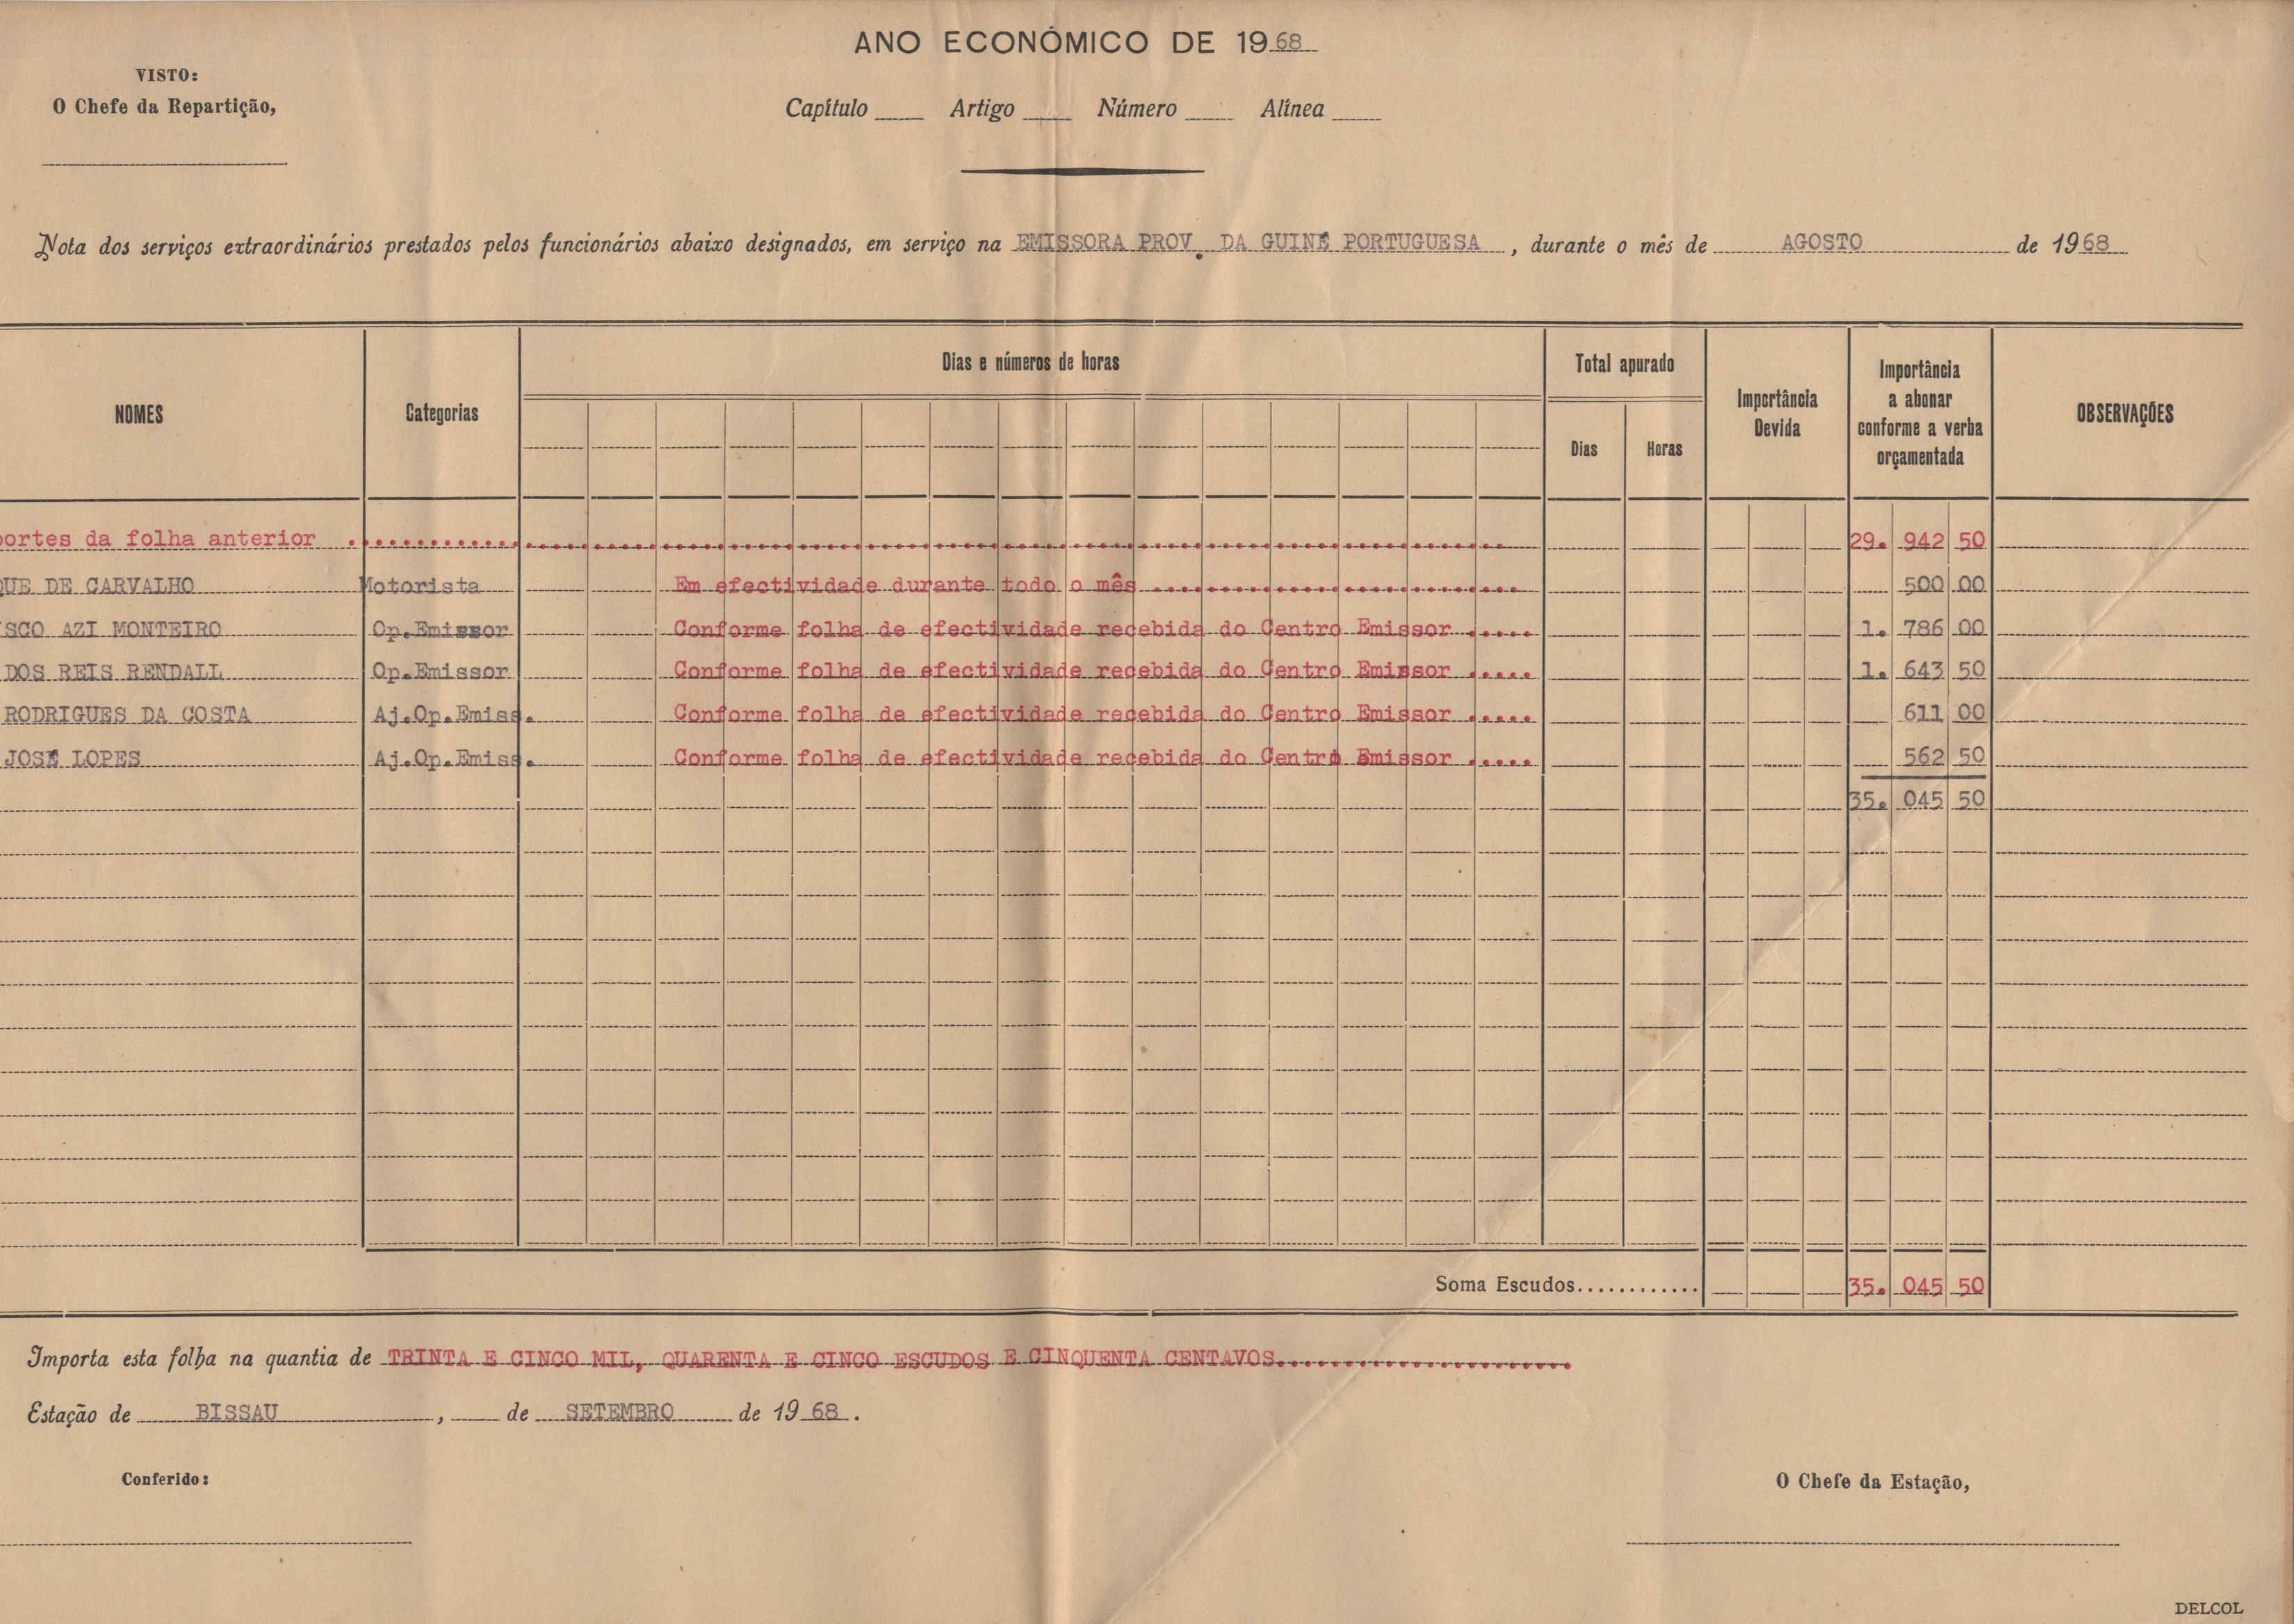 ANO ECONÓMICO DE 1968
VISTO:
O Chefe da Repartição,
Capítulo Artigo Número Alínea
Nota dos serviços extraordinários prestados pelos funcionários abaixo designados, em serviço na EMISSORA PROV. DA GUINÉ PORTUGUESA, durante o mês de AGOSTO de 1968
NOMES Categorias Dias e números de horas Total apurado Dias Horas Importância Devida Importância a abonar conforme a verba orçamentada OBSERVAÇÕES
ortes da folha anterior .................... 29. 942 50
QUE DE CARVALHO Motorista Em efectividade durante todo o mês .................... 500 00
SCO AZI MONTEIRO Op.Emissor Conforme folha de efectividade recebida do Centro Emissor ..... 1. 786 00
DOS REIS RENDALL Op.Emissor Conforme folha de efectividade recebida do Centro Emissor ..... 1. 643 50
RODRIGUES DA COSTA Aj.Op.Emiss. Conforme folha de efectividade recebida do Centro Emissor ..... 611 00
JOSÉ LOPES Aj.Op.Emiss. Conforme folha de efectividade recebida do Centro Emissor ..... 562 50
35. 045 50
Soma Escudos............ 35. 045 50
Importa esta folha na quantia de TRINTA E CINCO MIL, QUARENTA E CINCO ESCUDOS E CINQUENTA CENTAVOS......................
Estação de BISSAU, de SETEMBRO de 1968.
Conferido:
O Chefe da Estação,
DELCOL